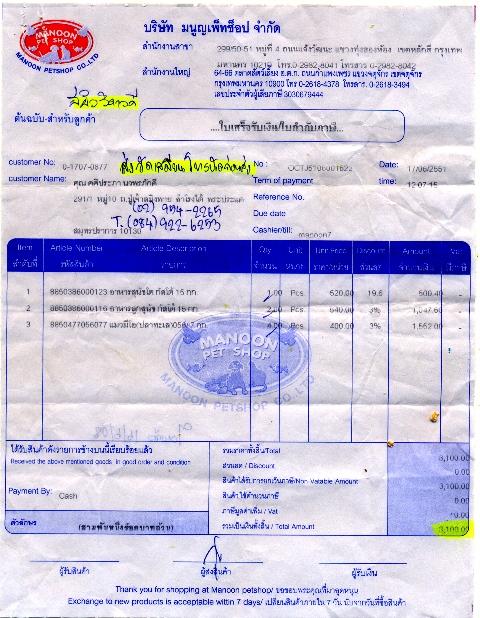 MANOON
PET SHOP
MANOON PETSHOP CO.,LTD
บริษัท มนูญเพ็ทช็อป จำกัด
สำนักงานสาขา 299/50-51 หมู่ที่ 4 ถนนแจ้งวัฒนะ แขวงทุ่งสองห้อง เขตหลักสี่ กรุงเทพ
มหานคร 10210 โทร.0-2982-8041 โทรสาร 0-2982-8042
สำนักงานใหญ่ 64-66 ตลาดสัตว์เลี้ยง อ.ต.ก. ถนนกำแพงเพชร แขวงจตุจักร เขตจตุจักร
กรุงเทพมหานคร 10900 โทร 0-2618-4378 โทรสาร. 0-2618-3494
เลขประจำตัวผู้เสียภาษี 3030679444
ต้นฉบับ-สำหรับลูกค้า
...ใบเสร็จรับเงิน/ใบกำกับภาษี...
customer No: 0-1707-0877 No : OCTJ5106001622 Date: 17/06/2551
customer Name: Term of payment time: 12:07:15
291/1 หมู่10 Reference No.
(02) 954-2265
Due date
T. (084) 922-6253
สมุทรปราการ 10130 Cashier/bill: manoon7
Item Article Number Article Description Qty Unit Unit Price Discount Amount Vat
ลำดับที่ รหัสสินค้า รายการ จำนวน หน่วย ราคา/หน่วย ส่วนลด จำนวนเงิน ภาษี
1 8850386000123 อาหารสุนัขโต 15 กก. 1.00 Pcs. 620.00 19.6 500.40 -
2 8850386000116 อาหารลูกสุนัข 15 กก. 2.00 Pcs. 540.00 3% 1,047.60 -
3 8850477056077 แมวมีโอ 7 กก. 4.00 Pcs. 400.00 3% 1,552.00 -
MANOON
PET SHOP
MANOON PETSHOP CO.,LTD
ได้รับสินค้าดังรายการข้างบนนี้เรียบร้อยแล้ว
Received the above mentioned goods in good order and condition
รวมราคาทั้งสิ้น/Total 3,100.00
ส่วนลด / Discount 0.00
สินค้าได้รับการยกเว้นภาษี/Non Vatable Amount 3,100.00
Payment By: Cash
สินค้าใช้คำนวนภาษี 0.00
ภาษีมูลค่าเพิ่ม / Vat 0.00
ตัวอักษร (สามพันหนึ่งร้อยบาทถ้วน) รวมเป็นเงินทั้งสิ้น / Total Amount 3,100.00
ผู้รับสินค้า ผู้ส่งสินค้า ผู้รับเงิน
Thank you for shopping at Manoon petshop/ ขอขอบพระคุณที่มาอุดหนุน
Exchange to new products is acceptable wittin 7 days/ เปลี่ยนสินค้าภายใน 7 วัน นับจากวันที่ซื้อสินค้า